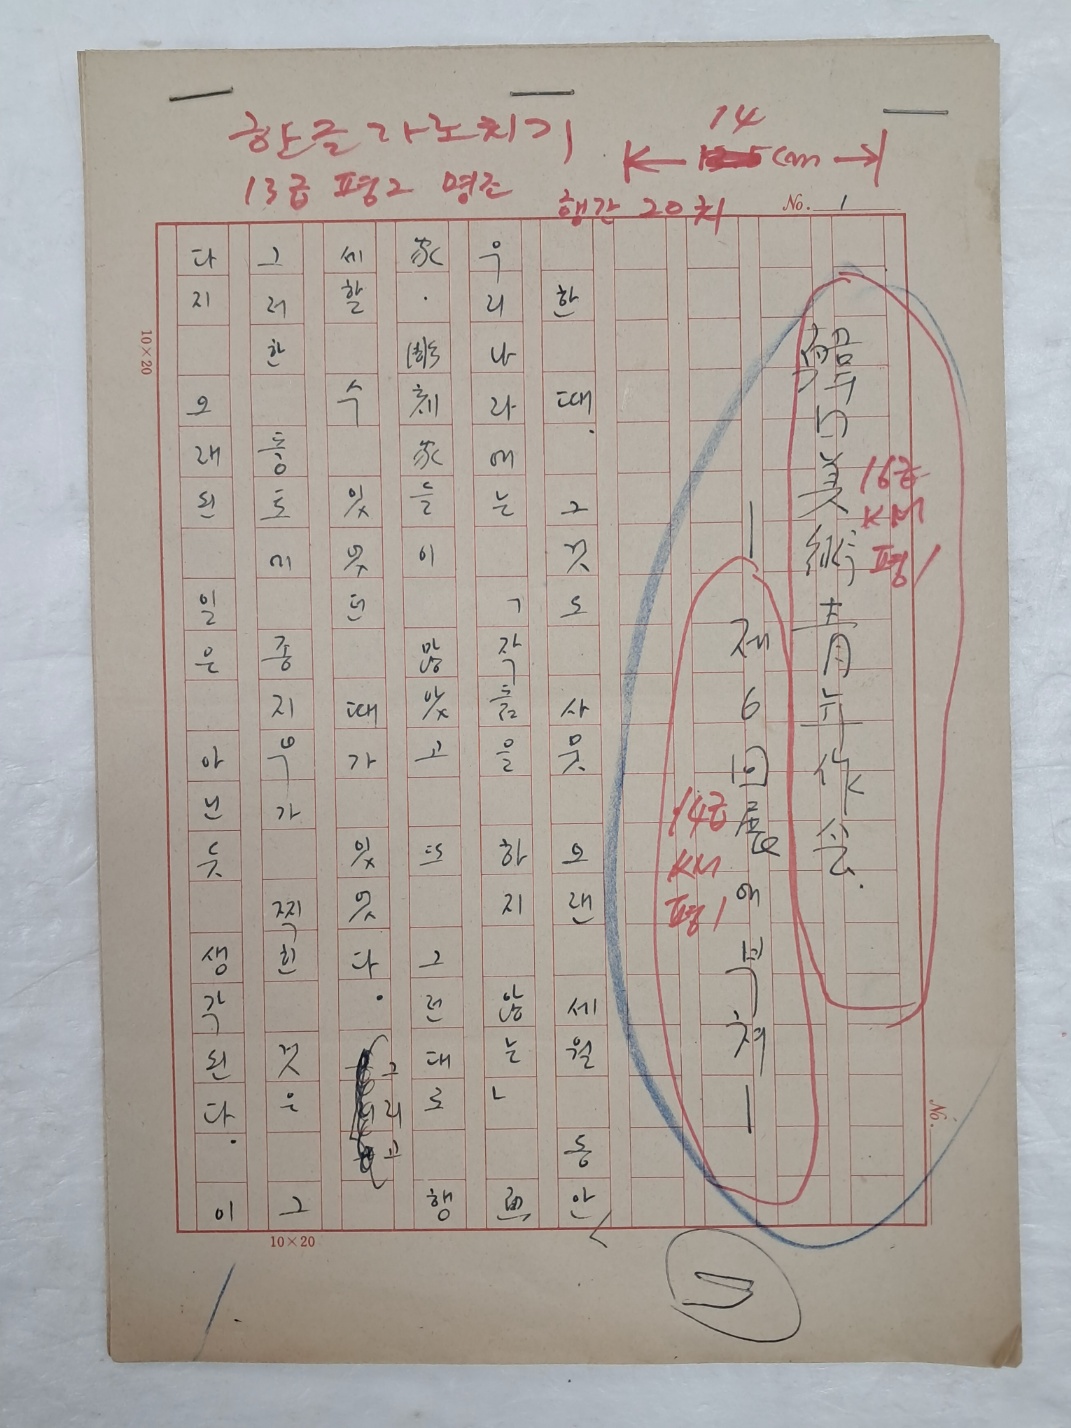 한글 가로치기
14
cm
13급 평2 명조
행간 20치
No. 1
美術青年作会.
16급
KM
평1
— 제6回展에 부쳐 —
14급
KM
평1
한때. 그것도 사뭇 오랜 세월 동안
우리나라에는 「작품을 하지 않는」 画
家·彫刻家들이 많았고 또 그런대로 행
세할 수 있었던 때가 있었다. 그리고
그러한 풍토에 종지부가 찍힌 것은 그
다지 오래된 일은 아닌듯 생각된다. 이
10×20
No.
10×20